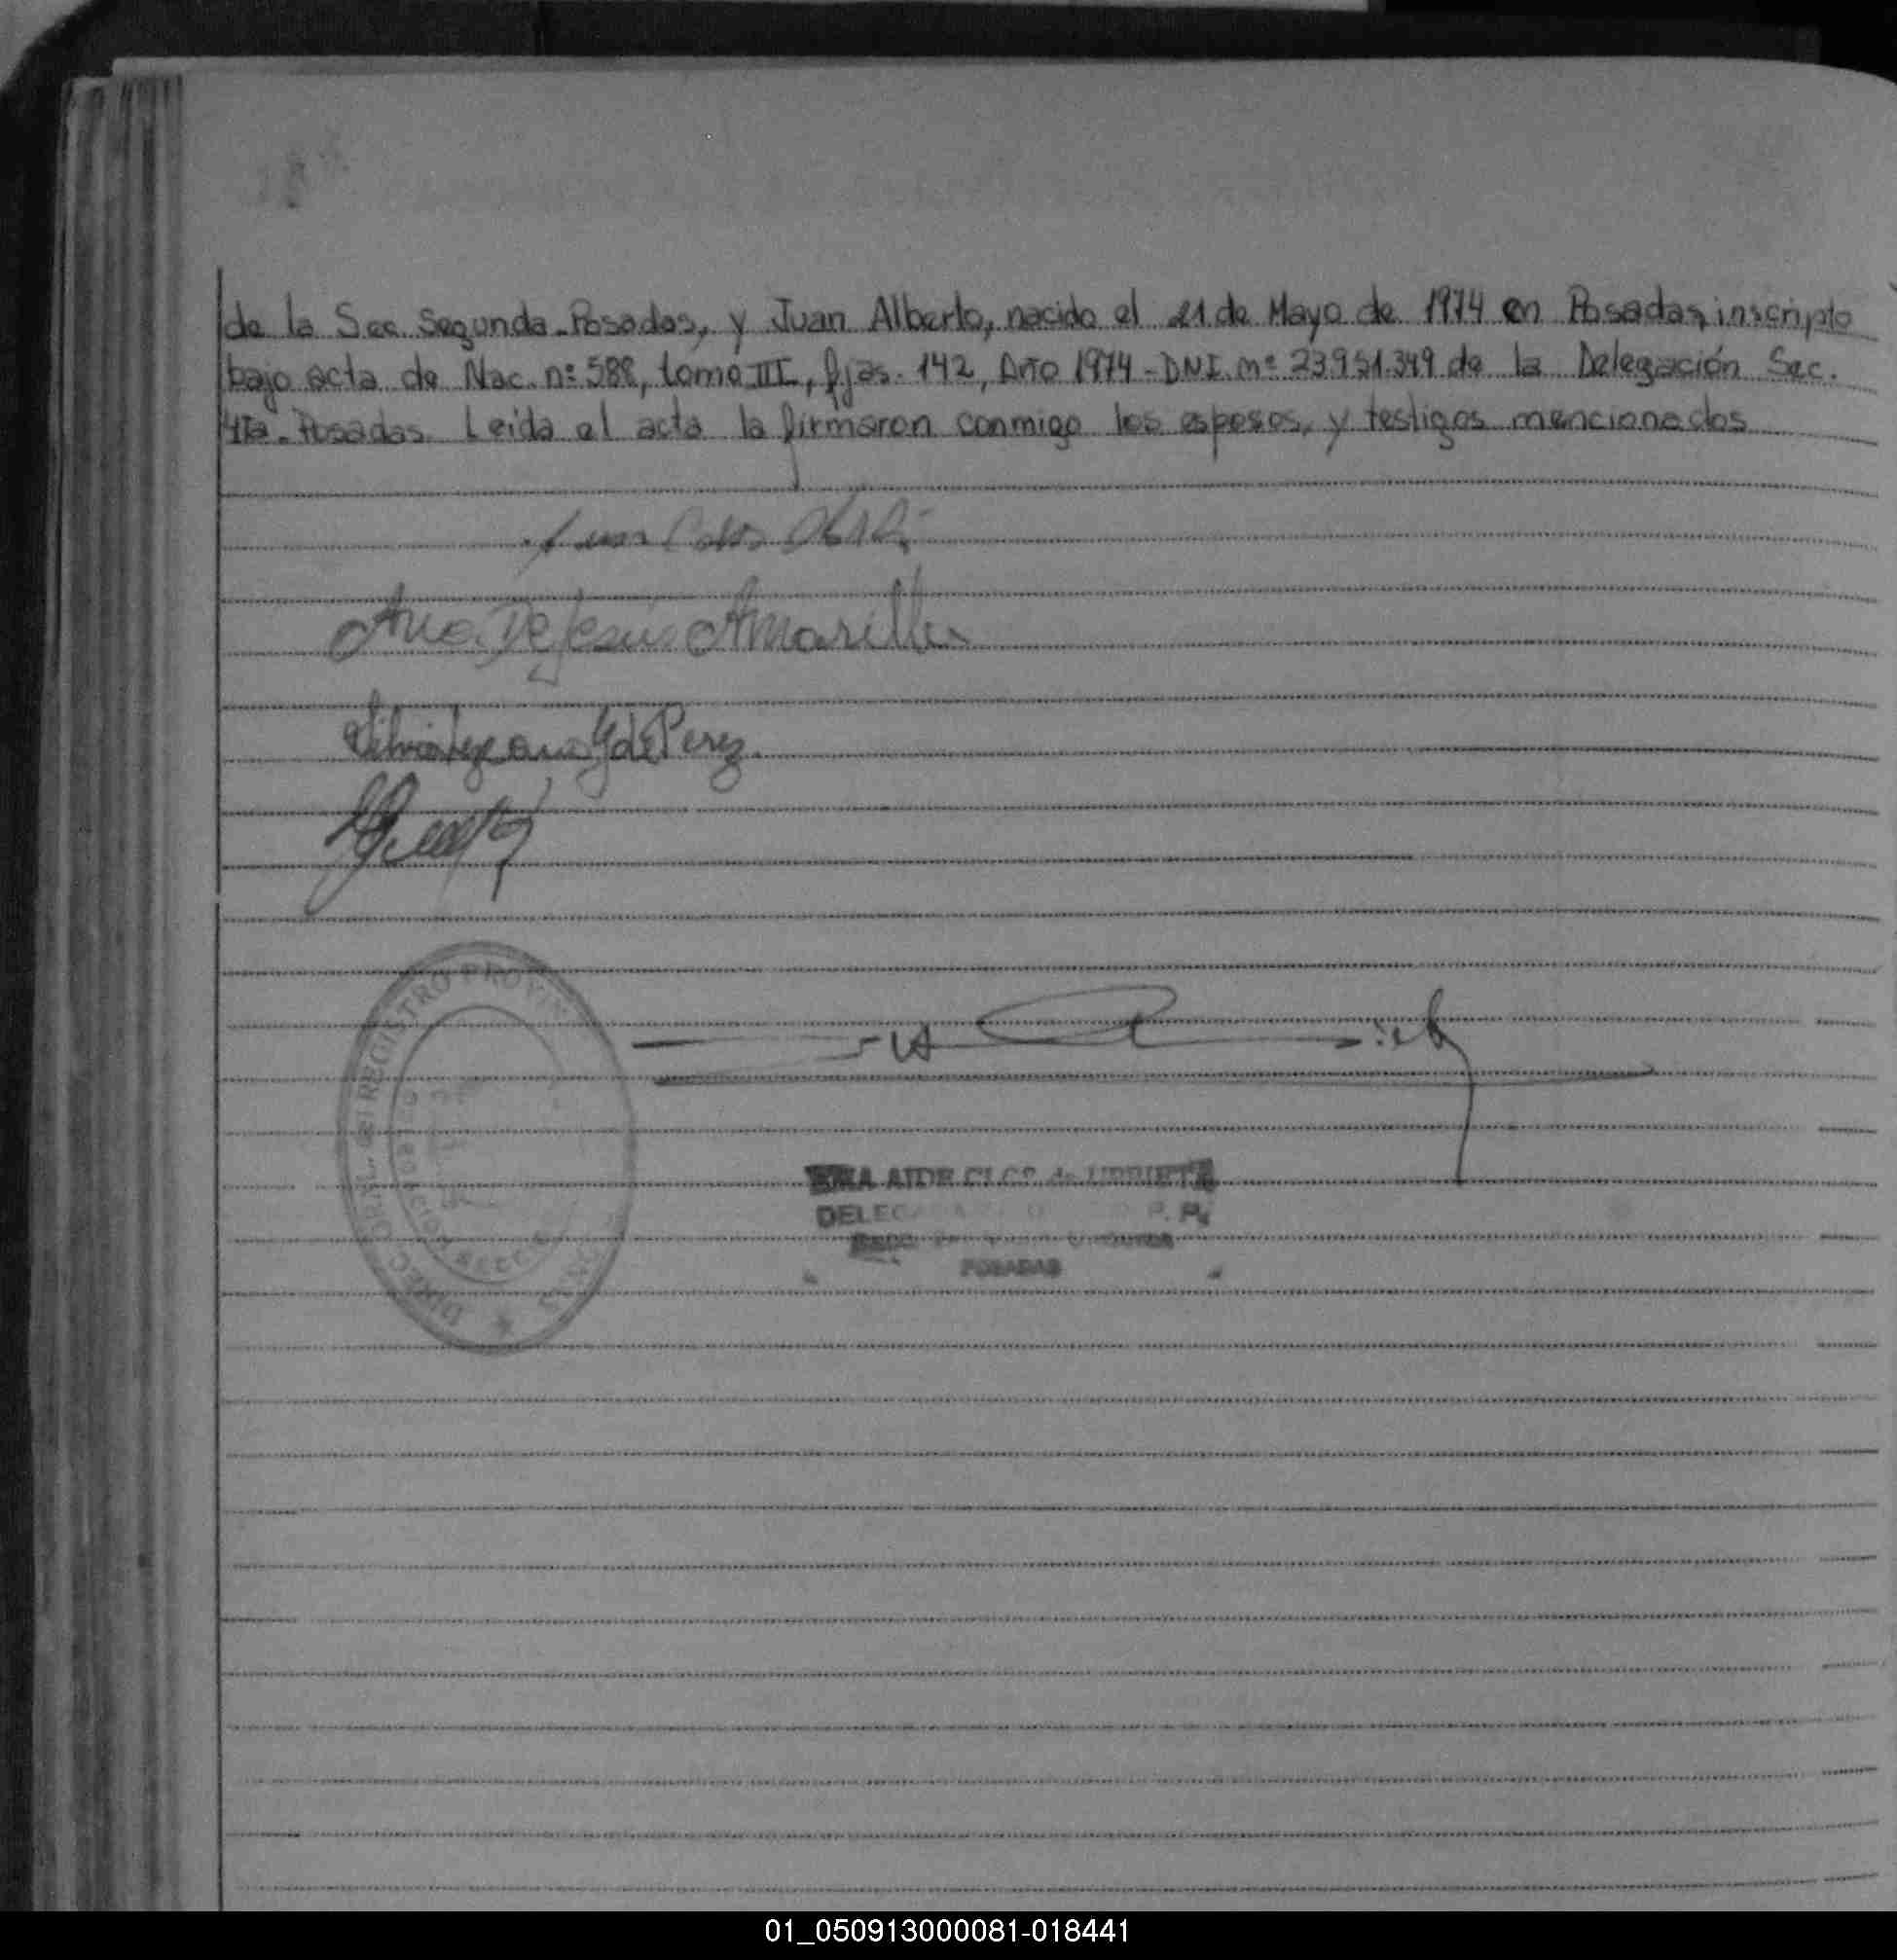 de la Sec. Segunda-Posadas, y Juan Alberto, nacido el 21 de Mayo de 1974 en Posadas, inscripto
bajo acta de Nac. nº 588, tomo III, fjas. 142, Año 1974 - DNI. nº 23.951.349 de la Delegación Sec.
4ta-Posadas. Leida el acta la firmaron conmigo los esposos, y testigos mencionados
Juan Carlos
Ana De Jesus Amarilla
de Perez
REGISTRO PROVIN
DIREC. GRAL.
AIDE de URRIETA
POSADAS
01_050913000081-018441